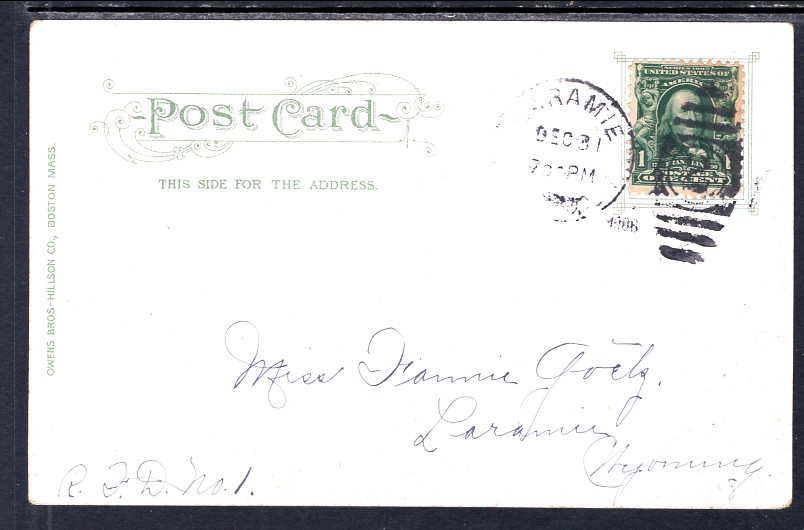 Post Card
THIS SIDE FOR THE ADDRESS.
OWENS BROS-HILLSON CO., BOSTON MASS.
LARAMIE
DEC 31
7 PM
1906
SERIES 1902
UNITED STATES OF
AMERICA
1 FRANKLIN 1
POSTAGE
ONE CENT
Miss Fannie Goetz.
Laramie
Wyoming.
R. F. D. No. 1.